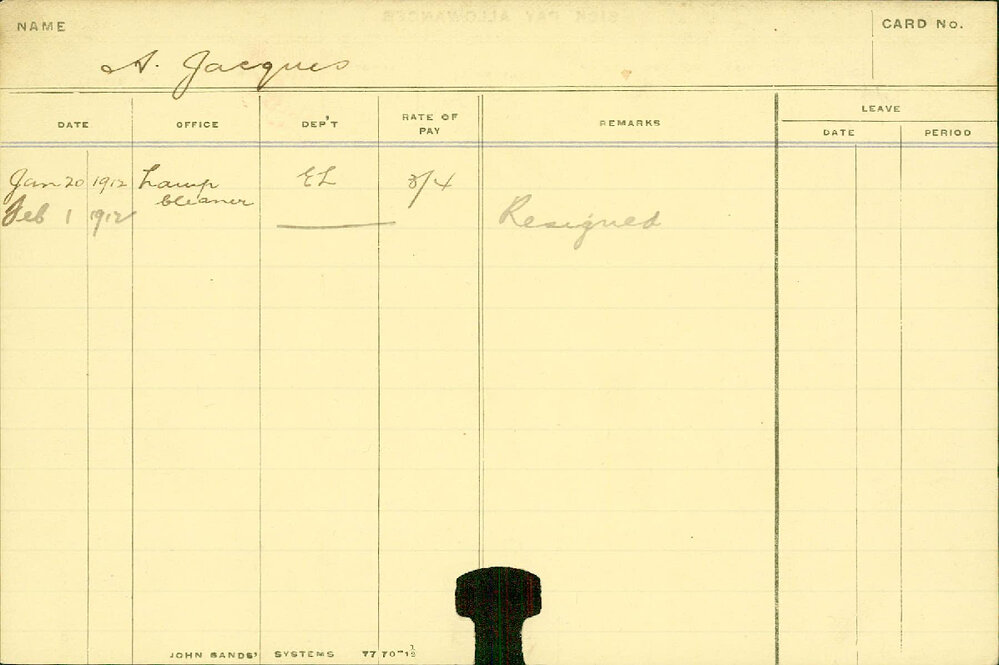 NAME
CARD No.
A. Jacques
LEAVE
DATE OFFICE DEP'T RATE OF PAY REMARKS DATE PERIOD
Jan 20 1912 Lamp cleaner EL 8/4
Feb 1 1912 Resigned
JOHN SANDS' SYSTEMS 7770-1/12